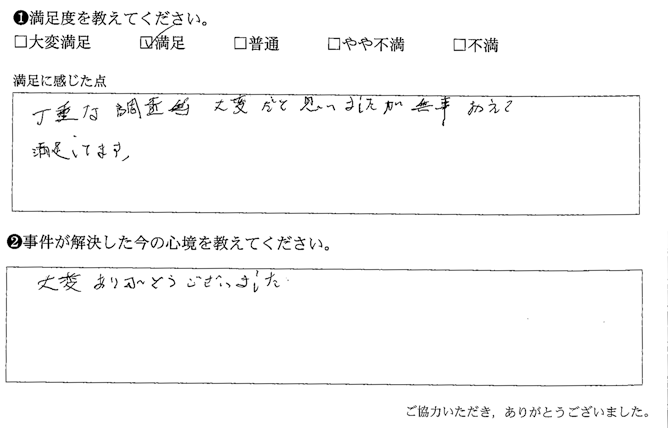 ❶満足度を教えてください。
□大変満足 ☑満足 □普通 □やや不満 □不満
満足に感じた点
丁重な調査 大変だと思いましたが無事おえて
満足してます。
❷事件が解決した今の心境を教えてください。
大変ありがとうございました
ご協力いただき，ありがとうございました。